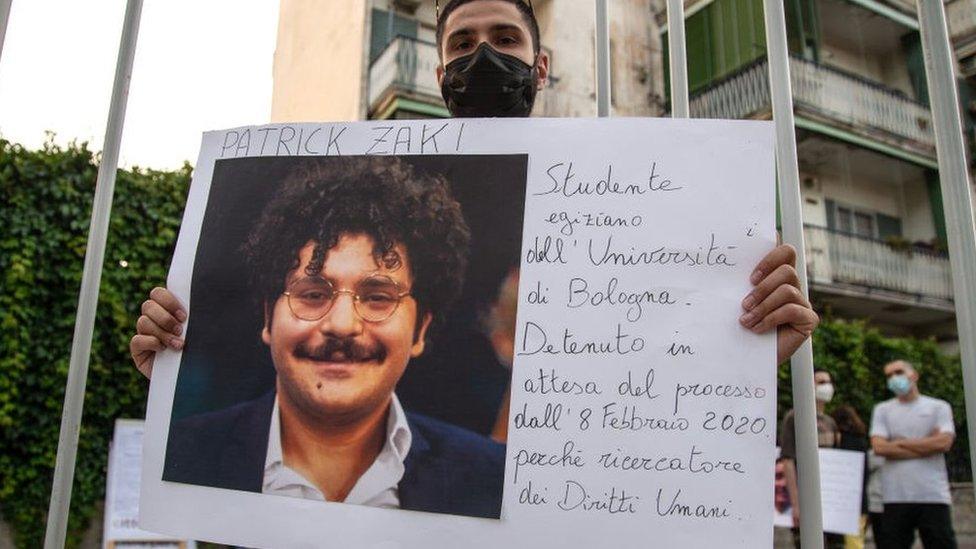 PATRICK ZAKI
Studente
egiziano
dell'Università
di Bologna.
Detenuto in
attesa del processo
dall'8 Febbraio 2020
perché ricercatore
dei Diritti Umani.